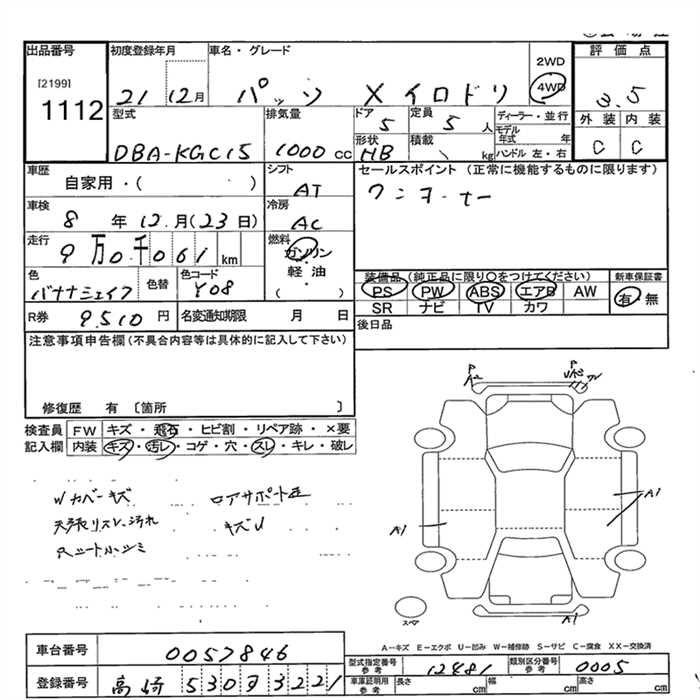 出品番号 初度登録年月 車名・グレード 2WD 評価点
[2199] 1112 21 12月 パッソ X イロドリ 4WD 3.5
型式 排気量 ドア 5 定員 5 人 ディーラー・並行 外装 内装
DBA-KGC15 1000 cc 形状 HB 積載 kg モデル年式 年 C C
ハンドル 左・右
車歴 シフト セールスポイント (正常に機能するものに限ります)
自家用・( ) AT ワンオーナー
車検 冷房
8 年 12.月(23日) AC
走行 燃料
9万0千061 km ガソリン
軽油
( )
装備品(純正品に限り○をつけてください) 新車保証書
色 色替 色コード PS PW ABS エアB AW 有・無
バナナシェイク Y08 SR ナビ TV カワ
R券 9,510 円 名変通知期限 月 日 後日品
注意事項申告欄(不具合内容等は具体的に記入して下さい)
修復歴 有 〔箇所 〕
検査員 FW キズ・飛石・ヒビ割・リペア跡・×要
記入欄 内装 キズ・汚レ・コゲ・穴・スレ・キレ・破レ
Wカバーキズ ロアサポート正
天張リスレ、汚れ キズU
シート小シミ
P A2 P UA3
A1 A1
スペア A1
A-キズ E-エクボ U-凹み W-補修跡 S-サビ C-腐食 XX-交換済
車台番号 0057846
型式指定番号 参考 12481 類別区分番号 参考 0005
登録番号 高崎 530 ヲ 3221
車庫証明用 参考 長さ cm 幅 cm 高さ cm